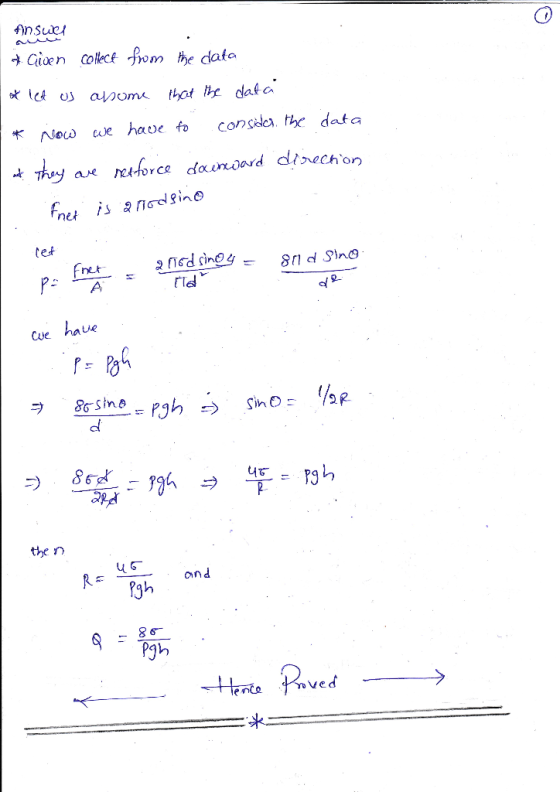 1
Answer
* Given collect from the data
* let us assume that the data
* Now we have to consider the data
* they are netforce downward direction
Fnet is 2πσdsinθ
let
P = Fnet / A = 2πσd sinθ4 / πd² = 8π d sinθ / d²
we have
P = Pgh
⇒ 8σ sinθ / d = Pgh ⇒ sinθ = 1/2R
⇒ 8σd / 2Rd = Pgh ⇒ 4σ / R = Pgh
then
R = 4σ / Pgh and
Q = 8σ / Pgh
Hence Proved
*